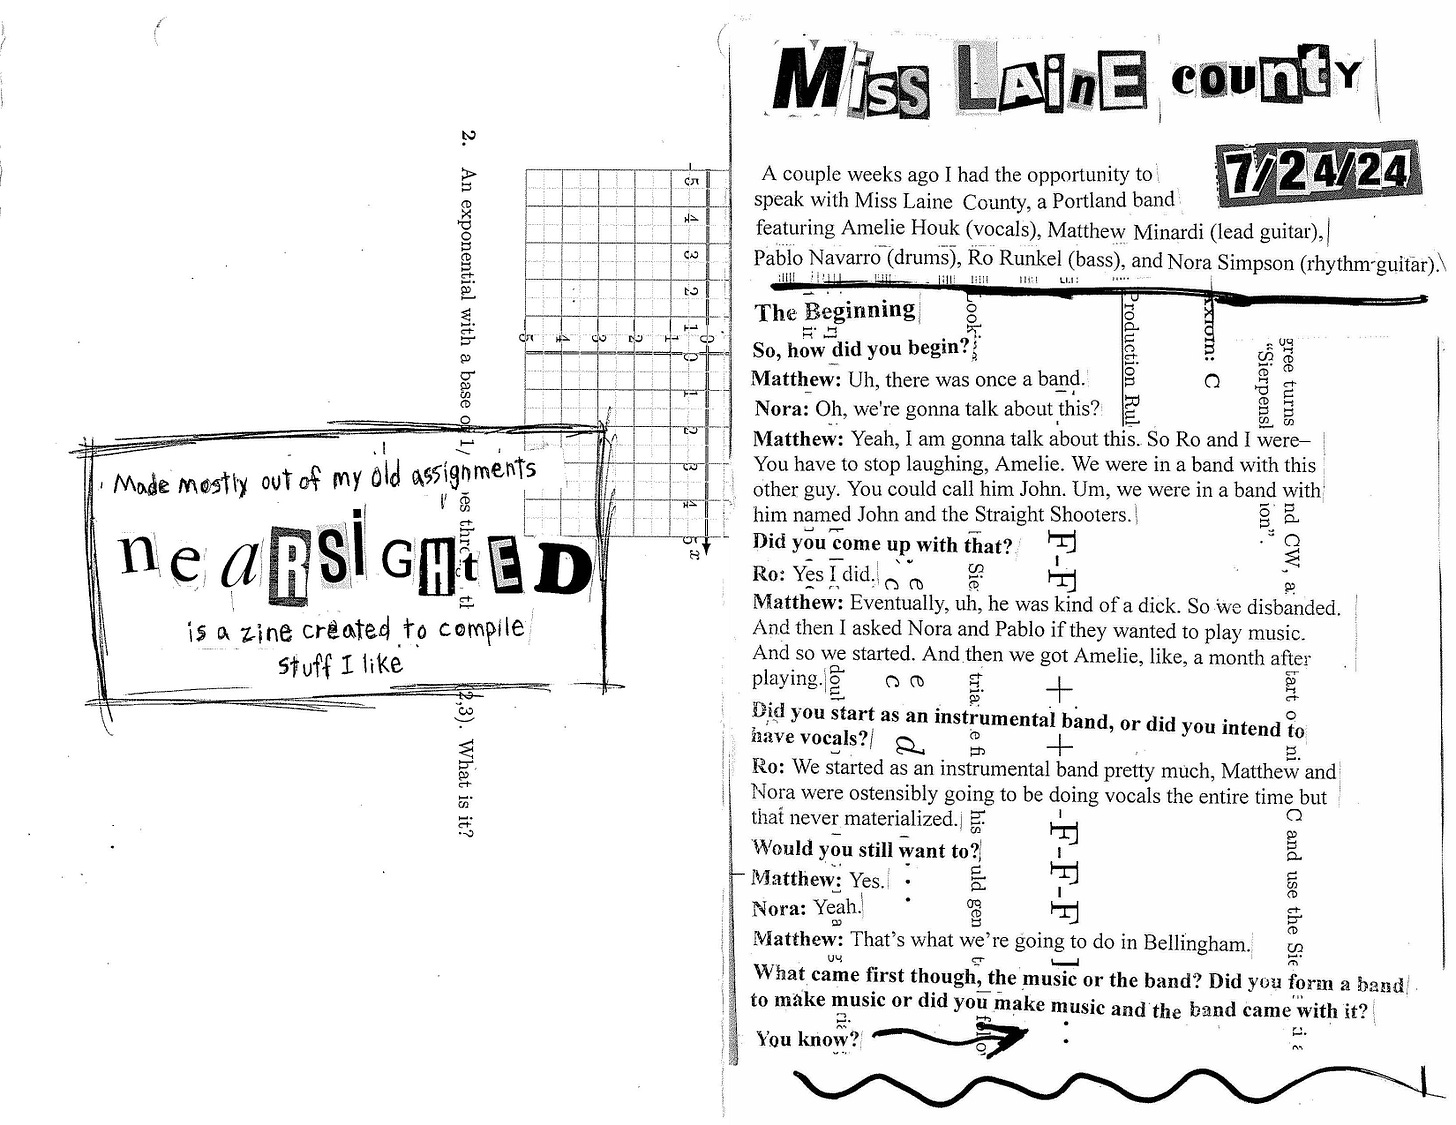 2. An exponential with a base of 1/
es thro
(2,3). What is it?
-5 -4 -3 -2 -1 0 1 2 3 4 5 x
5 4 3 2 1 0
Made mostly out of my old assignments
neARSiGHtED
is a zine created to compile
stuff I like
Miss LAinE county
7/24/24
A couple weeks ago I had the opportunity to
speak with Miss Laine County, a Portland band
featuring Amelie Houk (vocals), Matthew Minardi (lead guitar),
Pablo Navarro (drums), Ro Runkel (bass), and Nora Simpson (rhythm guitar).
The Beginning
So, how did you begin?
Matthew: Uh, there was once a band.
Nora: Oh, we're gonna talk about this?
Matthew: Yeah, I am gonna talk about this. So Ro and I were–
You have to stop laughing, Amelie. We were in a band with this
other guy. You could call him John. Um, we were in a band with
him named John and the Straight Shooters.
Did you come up with that?
Ro: Yes I did.
Matthew: Eventually, uh, he was kind of a dick. So we disbanded.
And then I asked Nora and Pablo if they wanted to play music.
And so we started. And then we got Amelie, like, a month after
playing.
Did you start as an instrumental band, or did you intend to
have vocals?
Ro: We started as an instrumental band pretty much, Matthew and
Nora were ostensibly going to be doing vocals the entire time but
that never materialized.
Would you still want to?
Matthew: Yes.
Nora: Yeah.
Matthew: That's what we're going to do in Bellingham.
What came first though, the music or the band? Did you form a band
to make music or did you make music and the band came with it?
You know?
Look
Production Rul
Axiom: C
"Sierpensl
gree turns
ion".
nd CW, a
F-F
+
+
-F-F-F
C and use the Sie